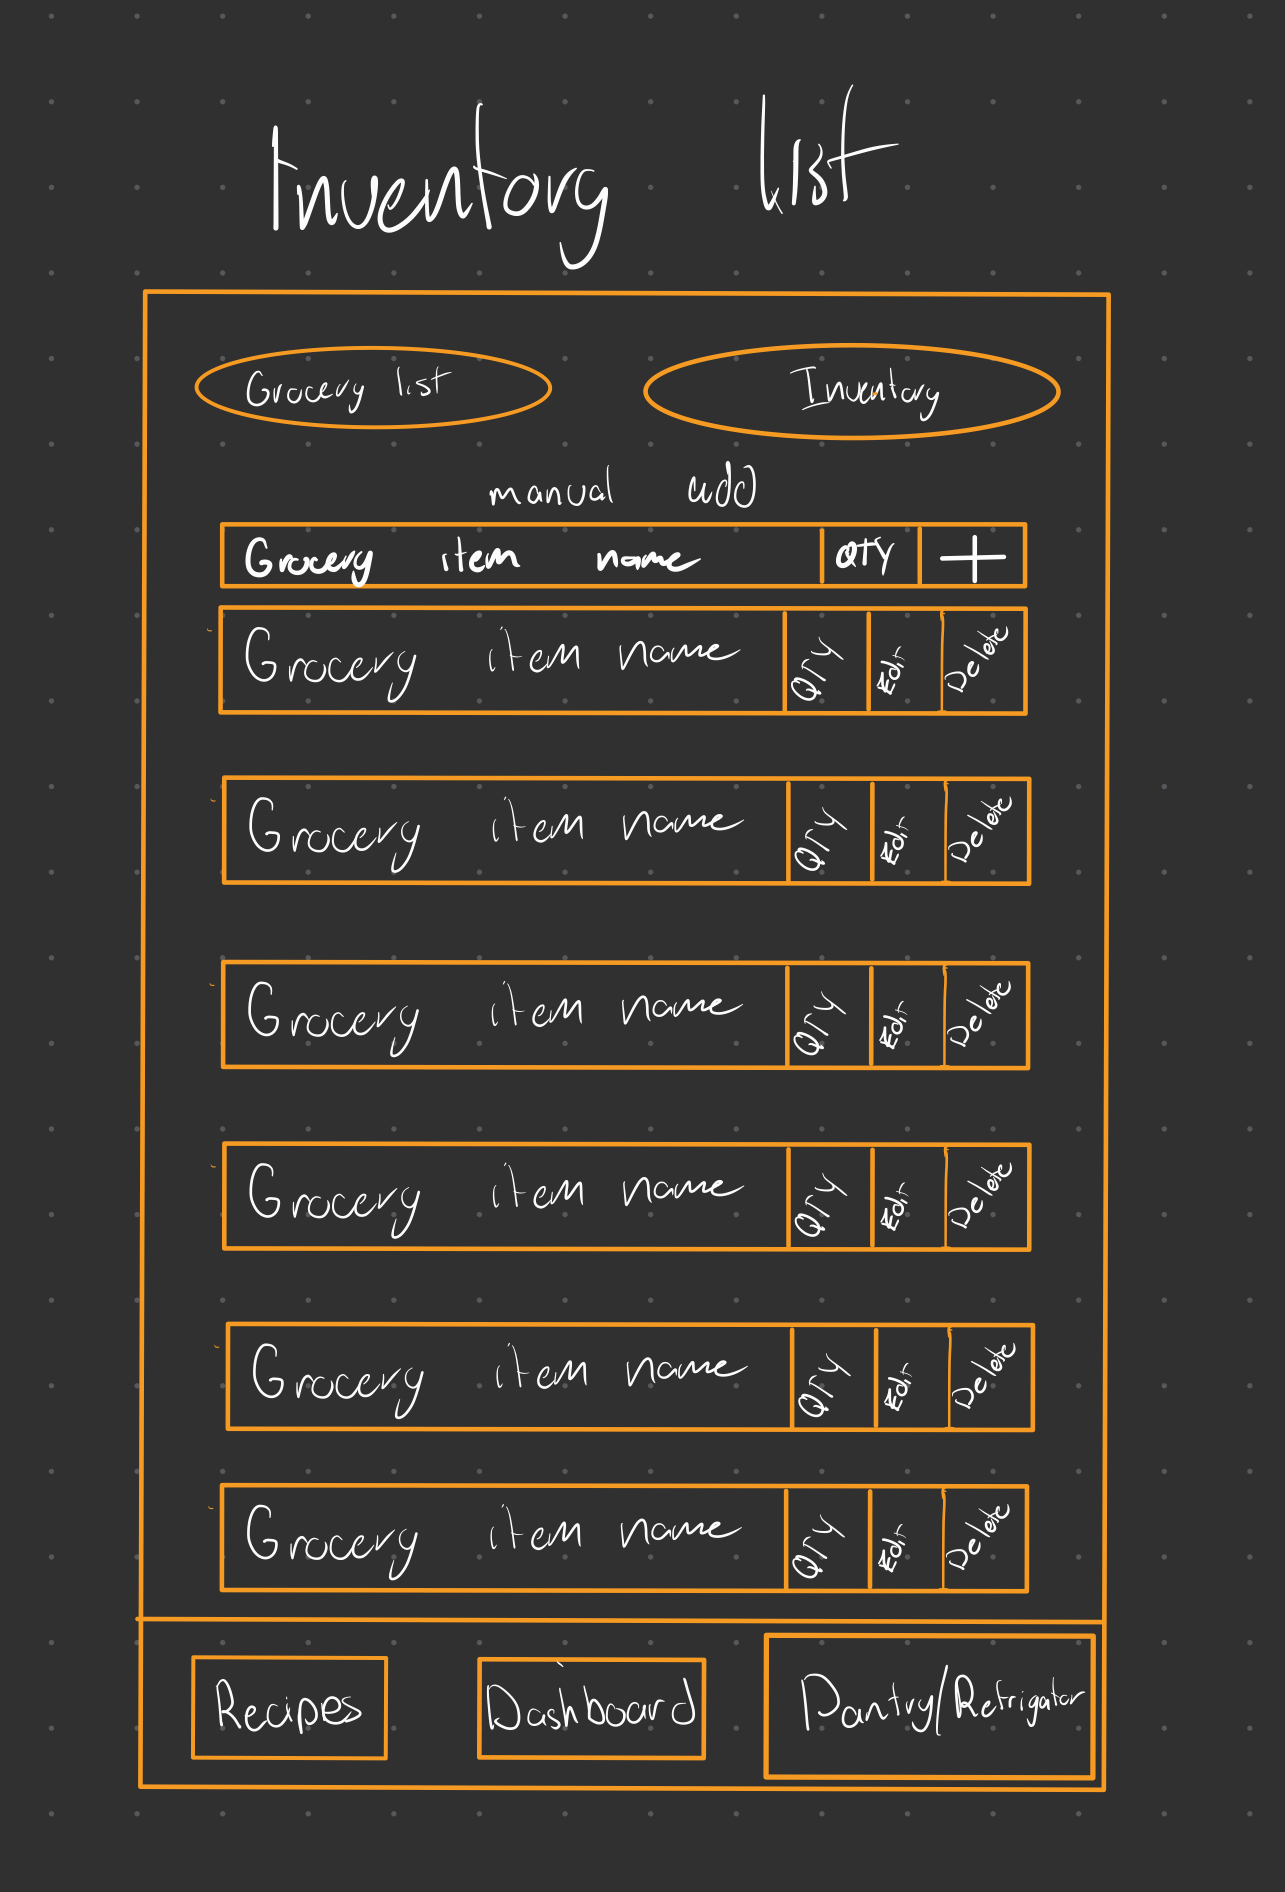 Inventory List
Grocery list
Inventory
manual add
Grocery item name QTY +
Grocery item name QTY Edit Delete
Grocery item name QTY Edit Delete
Grocery item name QTY Edit Delete
Grocery item name QTY Edit Delete
Grocery item name QTY Edit Delete
Grocery item name QTY Edit Delete
Recipes
Dashboard
Pantry/Refrigator